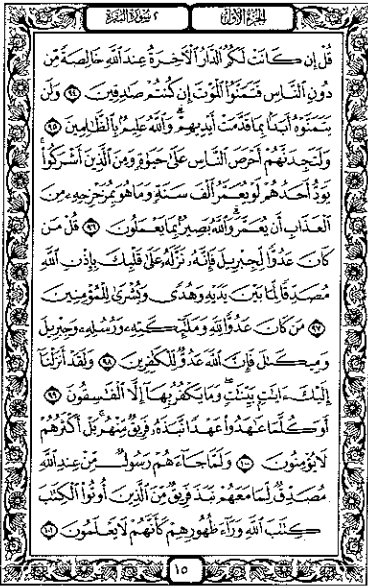 الجزء الأول
٢ سورة البقرة
قُلْ إِن كَانَتْ لَكُمُ الدَّارُ الْآخِرَةُ عِندَ اللَّهِ خَالِصَةً مِّن
دُونِ النَّاسِ فَتَمَنَّوُا الْمَوْتَ إِن كُنتُمْ صَادِقِينَ ٩٤ وَلَن
يَتَمَنَّوْهُ أَبَدًا بِمَا قَدَّمَتْ أَيْدِيهِمْ وَاللَّهُ عَلِيمٌ بِالظَّالِمِينَ ٩٥
وَلَتَجِدَنَّهُمْ أَحْرَصَ النَّاسِ عَلَىٰ حَيَاةٍ وَمِنَ الَّذِينَ أَشْرَكُوا
يَوَدُّ أَحَدُهُمْ لَوْ يُعَمَّرُ أَلْفَ سَنَةٍ وَمَا هُوَ بِمُزَحْزِحِهِ مِنَ
الْعَذَابِ أَن يُعَمَّرَ وَاللَّهُ بَصِيرٌ بِمَا يَعْمَلُونَ ٩٦ قُلْ مَن
كَانَ عَدُوًّا لِّجِبْرِيلَ فَإِنَّهُ نَزَّلَهُ عَلَىٰ قَلْبِكَ بِإِذْنِ اللَّهِ
مُصَدِّقًا لِّمَا بَيْنَ يَدَيْهِ وَهُدًى وَبُشْرَىٰ لِلْمُؤْمِنِينَ
٩٧ مَن كَانَ عَدُوًّا لِّلَّهِ وَمَلَائِكَتِهِ وَرُسُلِهِ وَجِبْرِيلَ
وَمِيكَالَ فَإِنَّ اللَّهَ عَدُوٌّ لِّلْكَافِرِينَ ٩٨ وَلَقَدْ أَنزَلْنَا
إِلَيْكَ آيَاتٍ بَيِّنَاتٍ وَمَا يَكْفُرُ بِهَا إِلَّا الْفَاسِقُونَ ٩٩
أَوَكُلَّمَا عَاهَدُوا عَهْدًا نَّبَذَهُ فَرِيقٌ مِّنْهُم بَلْ أَكْثَرُهُمْ
لَا يُؤْمِنُونَ ١٠٠ وَلَمَّا جَاءَهُمْ رَسُولٌ مِّنْ عِندِ اللَّهِ
مُصَدِّقٌ لِّمَا مَعَهُمْ نَبَذَ فَرِيقٌ مِّنَ الَّذِينَ أُوتُوا الْكِتَابَ
كِتَابَ اللَّهِ وَرَاءَ ظُهُورِهِمْ كَأَنَّهُمْ لَا يَعْلَمُونَ ١٠١
١٥